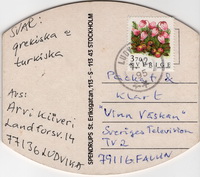 SVAR:
grekiska =
turkiska
Avs:
Arvi Kiiveri
Landforsv. 14
77136 LUDVIKA
SPENDRUPS St. Eriksgatan, 115-S-113 43 STOCKHOLM
SVERIGE
Packat &
Klart
"Vinn Väskan"
Sveriges Television
TV2
79116 FALUN